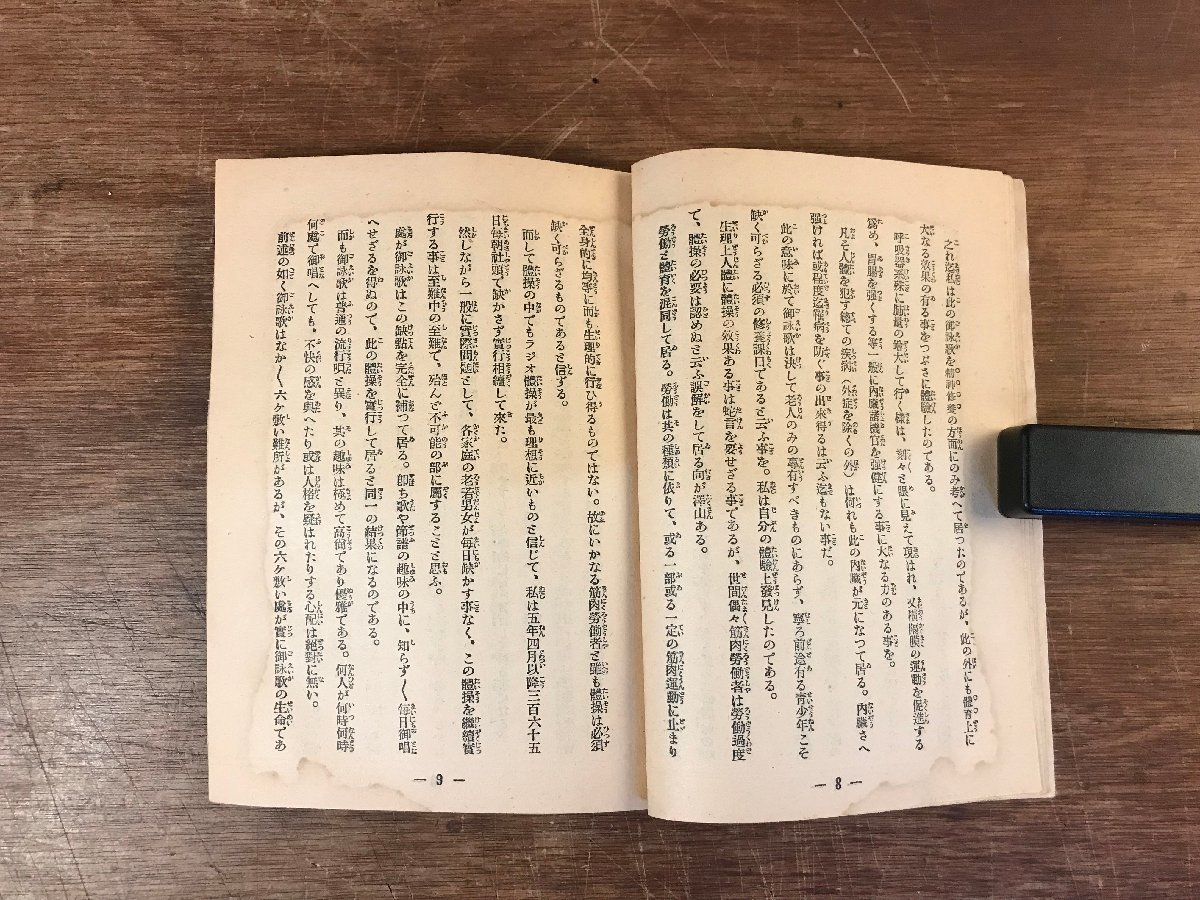 之れ迄私は此の御詠歌を精神修養の方面にのみ考へて居つたのであるが、此の外にも體育上に
大なる效果の有る事をつぶさに體驗したのである。
呼吸器殊に肺量の增大して行く樣は、刻々と眼に見えて現はれ、又橫隔膜の運動を促進する
爲め、胃腸を强くする等一般に內臟諸機官を强健にする事に大なる力のある事を。
凡そ人體を犯す總ての疾病(外症を除くの外)は何れも此の內臟が元になつて居る。內臟さへ
强ければ或程度迄罹病を防ぐ事の出來得るは云ふ迄もない事だ。
此の意味に於て御詠歌は決して老人のみの專有すべきものにあらず、寧ろ前途有る靑少年こそ
缺く可らざる必須の修養課目であると云ふ事を。私は自分の體驗上發見したのである。
生理上人體に體操の效果ある事は蛇言を要せざる事であるが、世間偶々筋肉勞働者は勞働過度
で、體操の必要は認めぬと云ふ誤解をして居る向が澤山ある。
勞働と體育を混同して居る。勞働は其の種類に依りて、或る一部或る一定の筋肉運動に止まり
— 8 —
全身的に均等に而も生理的に行ひ得るものではない。故にいかなる筋肉勞働者と雖も體操は必須
缺く可らざるものであると信ずる。
而して體操の中でもラジオ體操が最も理想に近いものと信じて、私は五年四月以降三百六十五
日每朝社頭で缺かさず實行相續して來た。
然しながら一般に實際問題として、各家庭の老若男女が每日缺かす事なく、この體操を繼續實
行する事は至難中の至難で、殆んど不可能の部に屬することと思ふ。
處が御詠歌はこの缺點を完全に補つて居る。卽ち歌や節譜の趣味の中に、知らず〱每日御唱
へせざるを得ぬので、此の體操を實行して居ると同一の結果になるのである。
而も御詠歌は普通の流行唄と異り、其の趣味は極めて高尙であり優雅である。何人が何時何時
何處で御唱へしても、不快の感を與へたり或は人格を疑はれたりする心配は絕對に無い。
前述の如く御詠歌はなか〱六ケ敷い難所があるが、その六ケ敷い處が實に御詠歌の生命であ
— 9 —